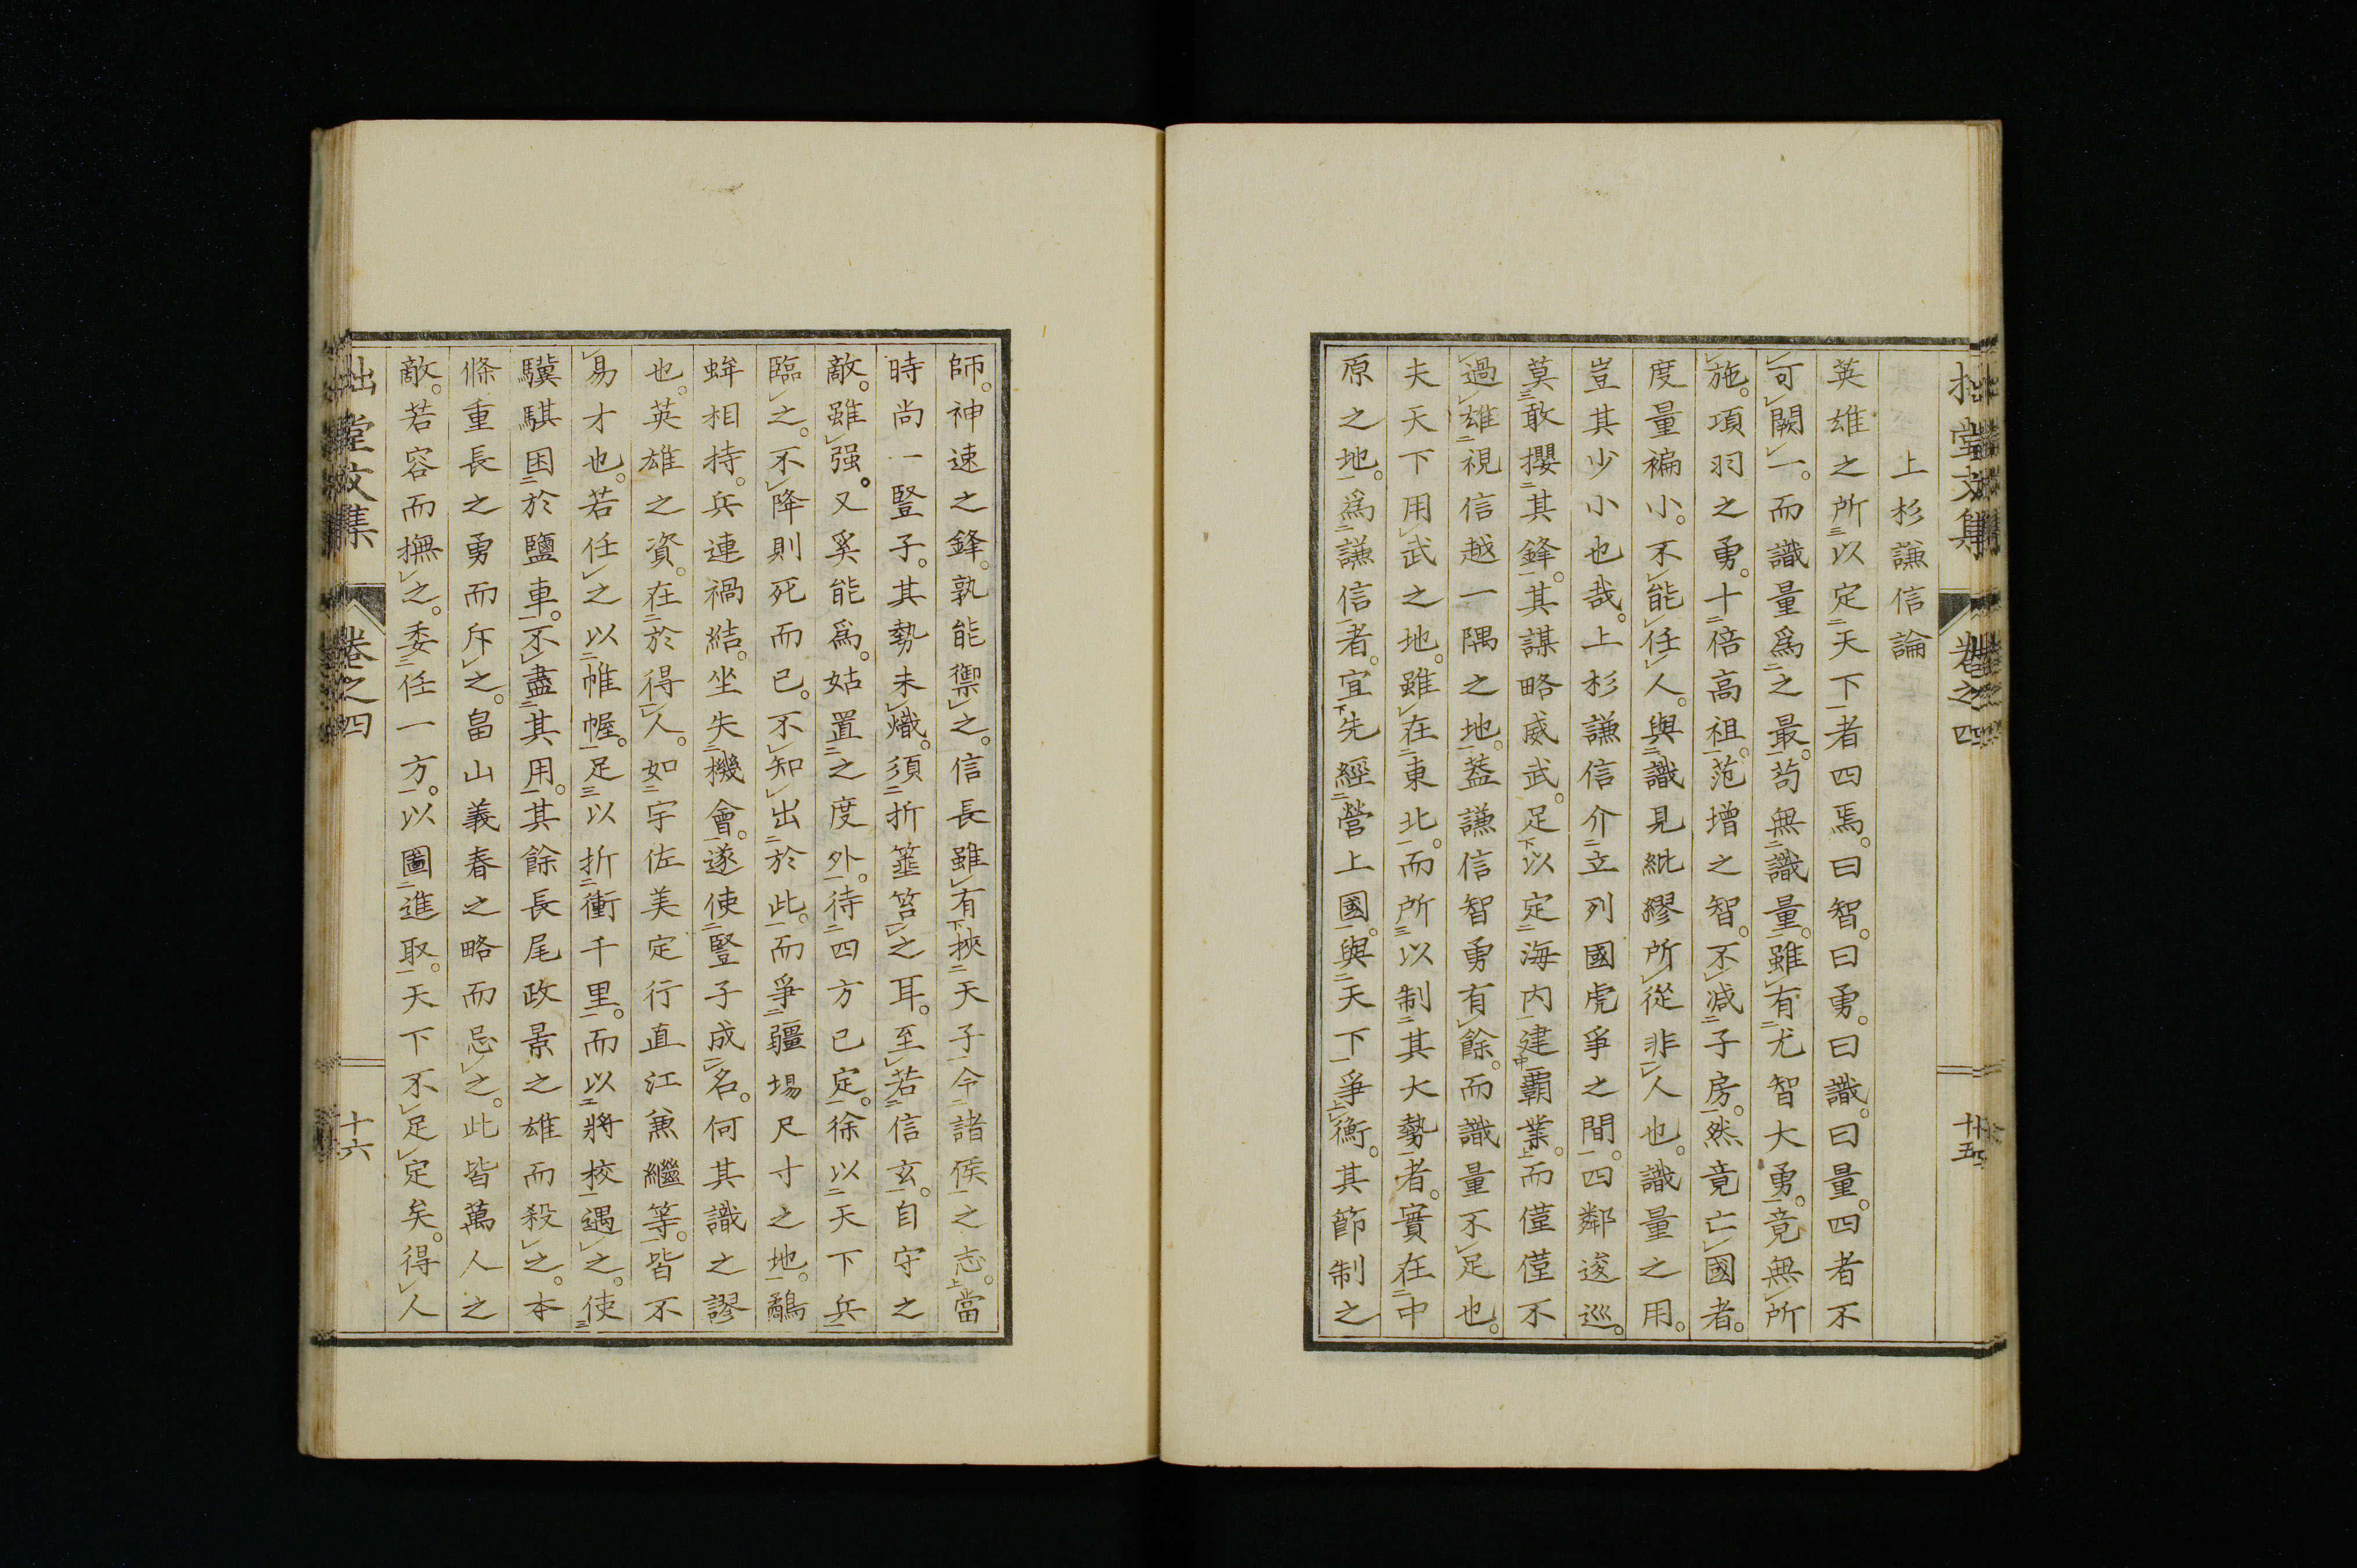 拙堂文集 卷之四 十五
上杉謙信論
英雄之所以定天下者四焉。曰智。曰勇。曰識。曰量。四者不
可闕一。而識量爲之最。苟無識量。雖有尤智大勇。竟無所
施。項羽之勇。十倍高祖。范增之智。不减子房。然竟亡國者。
度量褊小。不能任人。與識見紕繆所從非人也。識量之用。
豈其少小也哉。上杉謙信介立列國虎爭之間。四鄰逡巡。
莫敢攖其鋒。其謀略威武。足以定海內建霸業。而僅僅不
過雄視信越一隅之地。蓋謙信智勇有餘。而識量不足也。
夫天下用武之地。雖在東北。而所以制其大勢者。實在中
原之地。爲謙信者。宜先經營上國。與天下爭衡。其節制之
師。神速之鋒。孰能禦之。信長雖有挾天子令諸侯之志。當
時尚一豎子。其勢未熾。須折箠笞之耳。至若信玄。自守之
敵。雖强。又奚能爲。姑置之度外。待四方已定。徐以天下兵
臨之。不降則死而已。不知出於此。而爭疆場尺寸之地。鷸
蚌相持。兵連禍結。坐失機會。遂使豎子成名。何其識之謬
也。英雄之資。在於得人。如宇佐美定行直江兼繼等。皆不
易才也。若任之以帷幄。足以折衝千里。而以將校遇之。使
驥騏困於鹽車。不盡其用。其餘長尾政景之雄而殺之。本
條重長之勇而斥之。畠山義春之略而忌之。此皆萬人之
敵。若容而撫之。委任一方。以圖進取。天下不足定矣。得人
拙堂文集 卷之四 十六